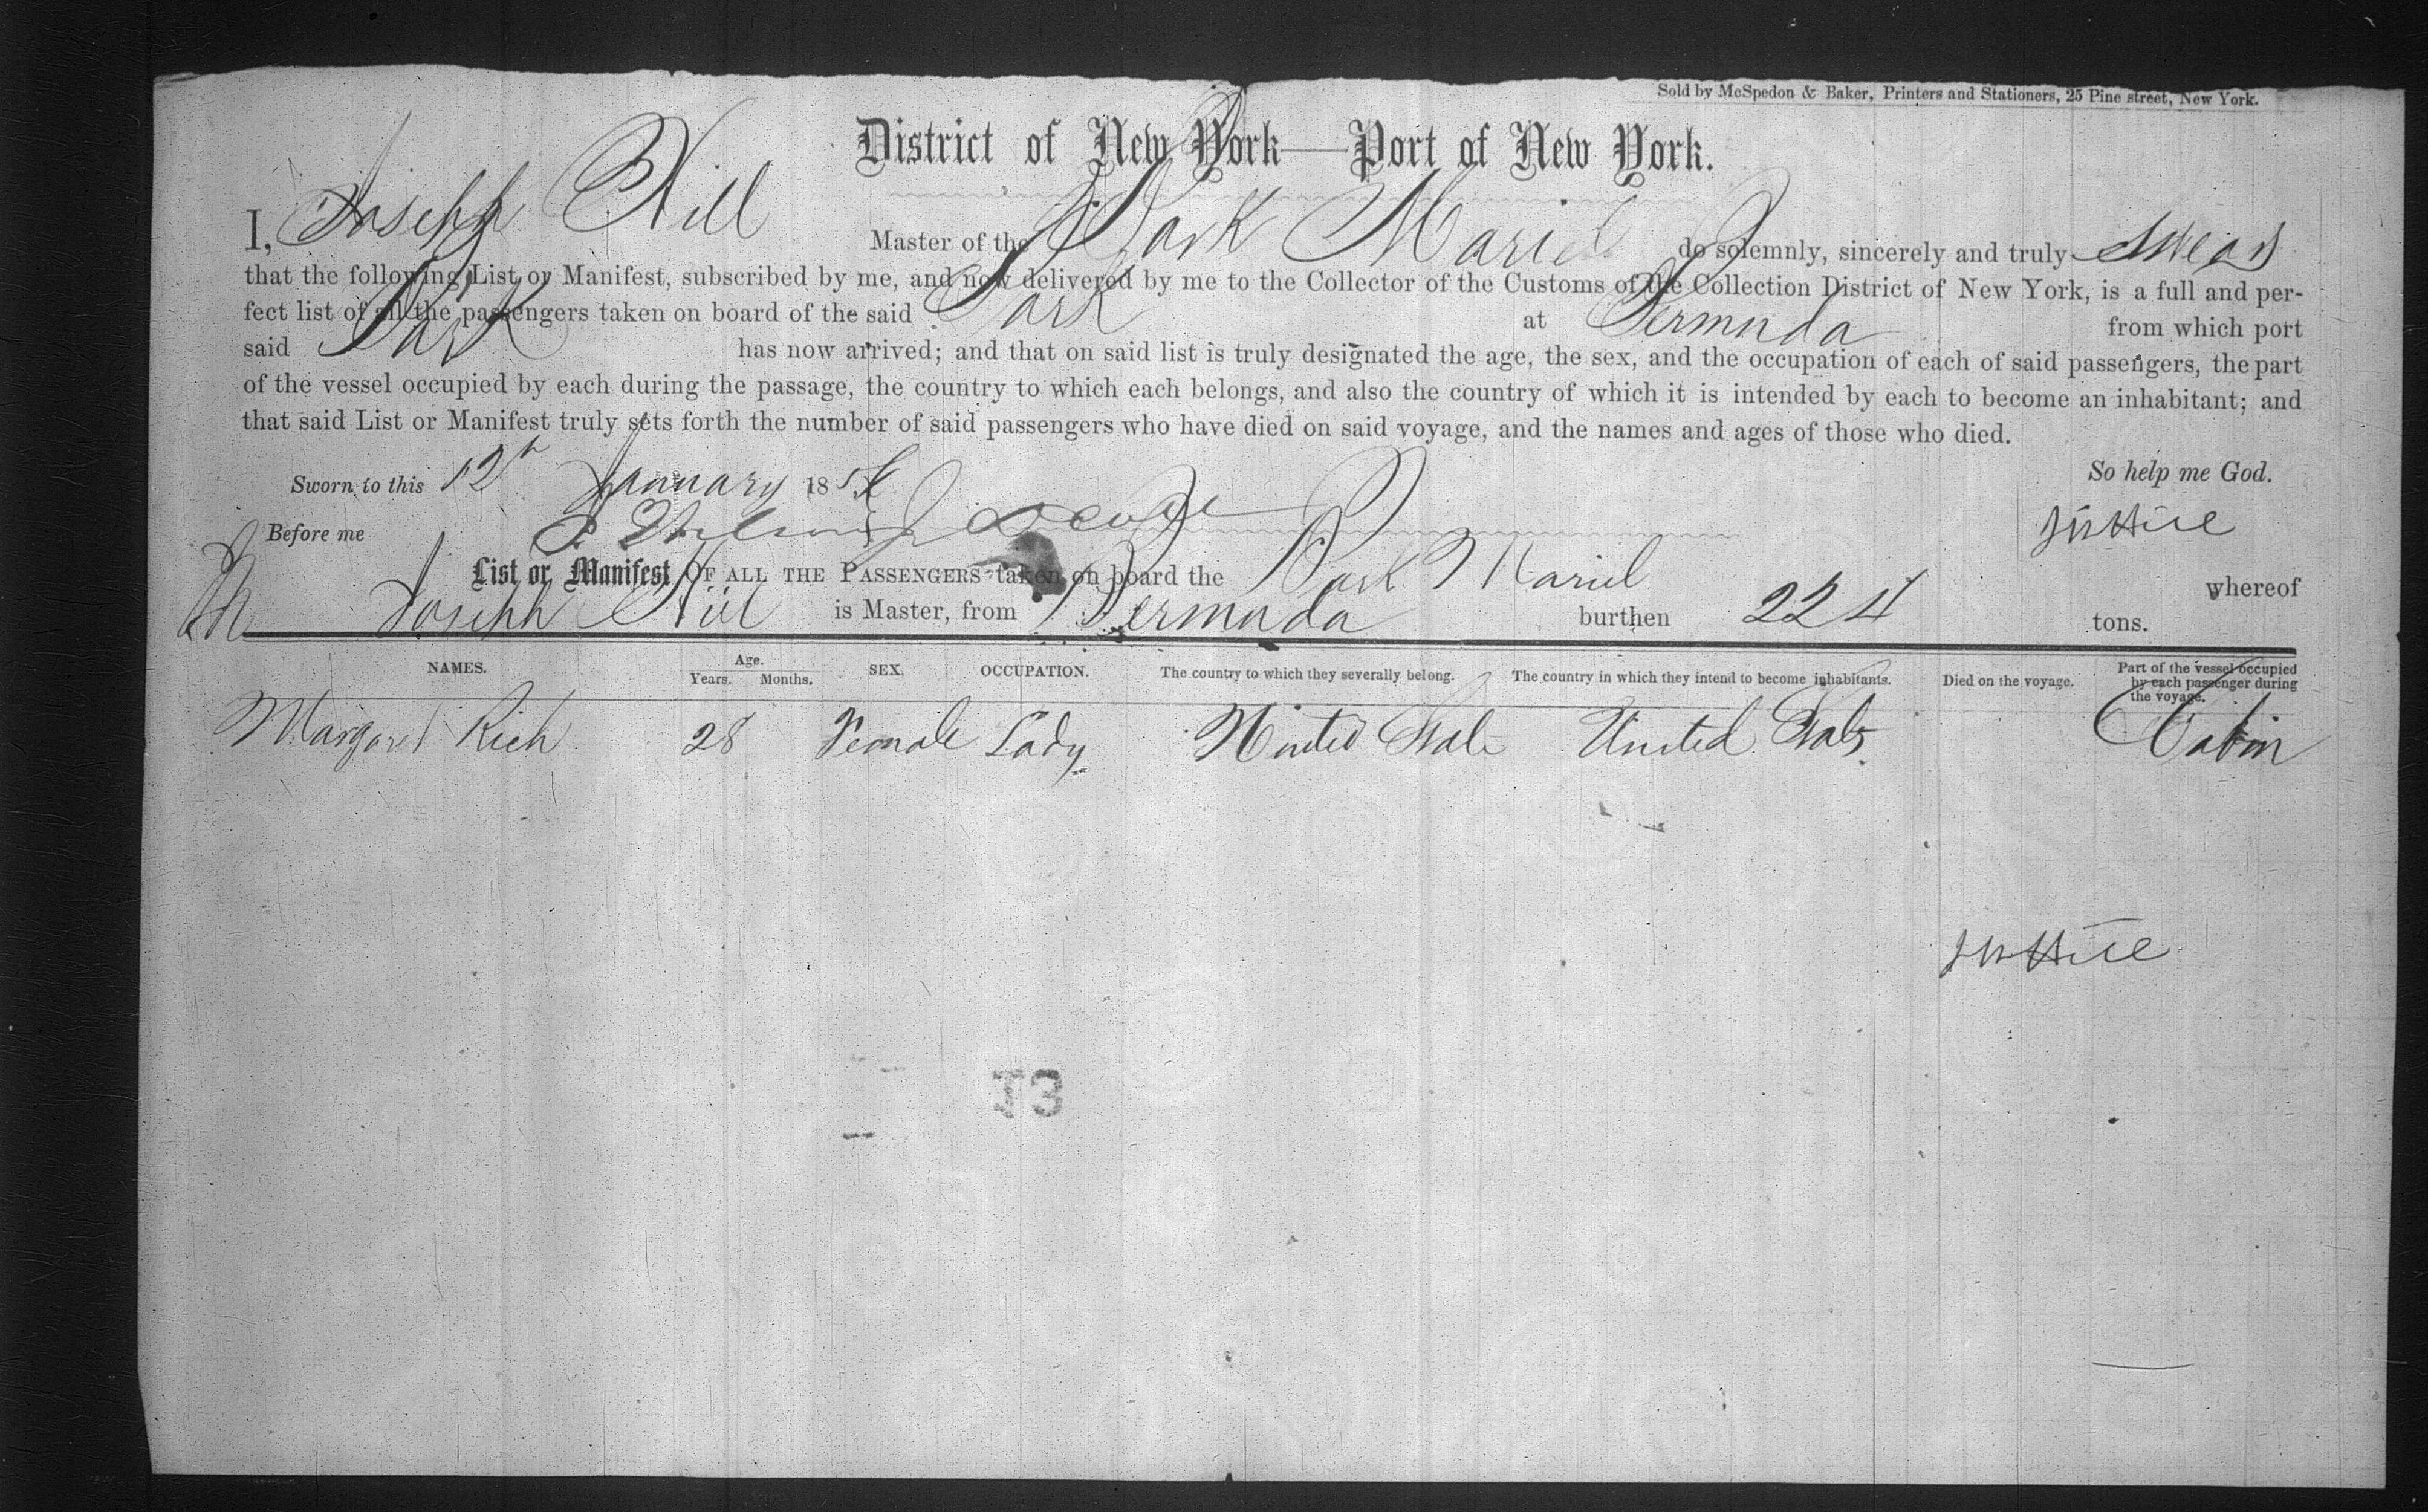 Sold by McSpedon & Baker, Printers and Stationers, 25 Pine street, New York.
District of New York—Port of New York.
I, Joseph Hill Master of the Bark Mariel do solemnly, sincerely and truly swear
that the following List or Manifest, subscribed by me, and now delivered by me to the Collector of the Customs of the Collection District of New York, is a full and per-
fect list of all the passengers taken on board of the said Bark at Bermuda from which port
said Bark has now arrived; and that on said list is truly designated the age, the sex, and the occupation of each of said passengers, the part
of the vessel occupied by each during the passage, the country to which each belongs, and also the country of which it is intended by each to become an inhabitant; and
that said List or Manifest truly sets forth the number of said passengers who have died on said voyage, and the names and ages of those who died.
Sworn to this 12th January 185 So help me God.
Before me
List or Manifest OF ALL THE PASSENGERS taken on board the Bark Mariel whereof
Joseph Hill is Master, from Bermuda burthen 224 tons.
NAMES. Age. Years. Months. SEX. OCCUPATION. The country to which they severally belong. The country in which they intend to become inhabitants. Died on the voyage. Part of the vessel occupied by each passenger during the voyage.
Margaret Rich 28 Female Lady United State United States Cabin
13